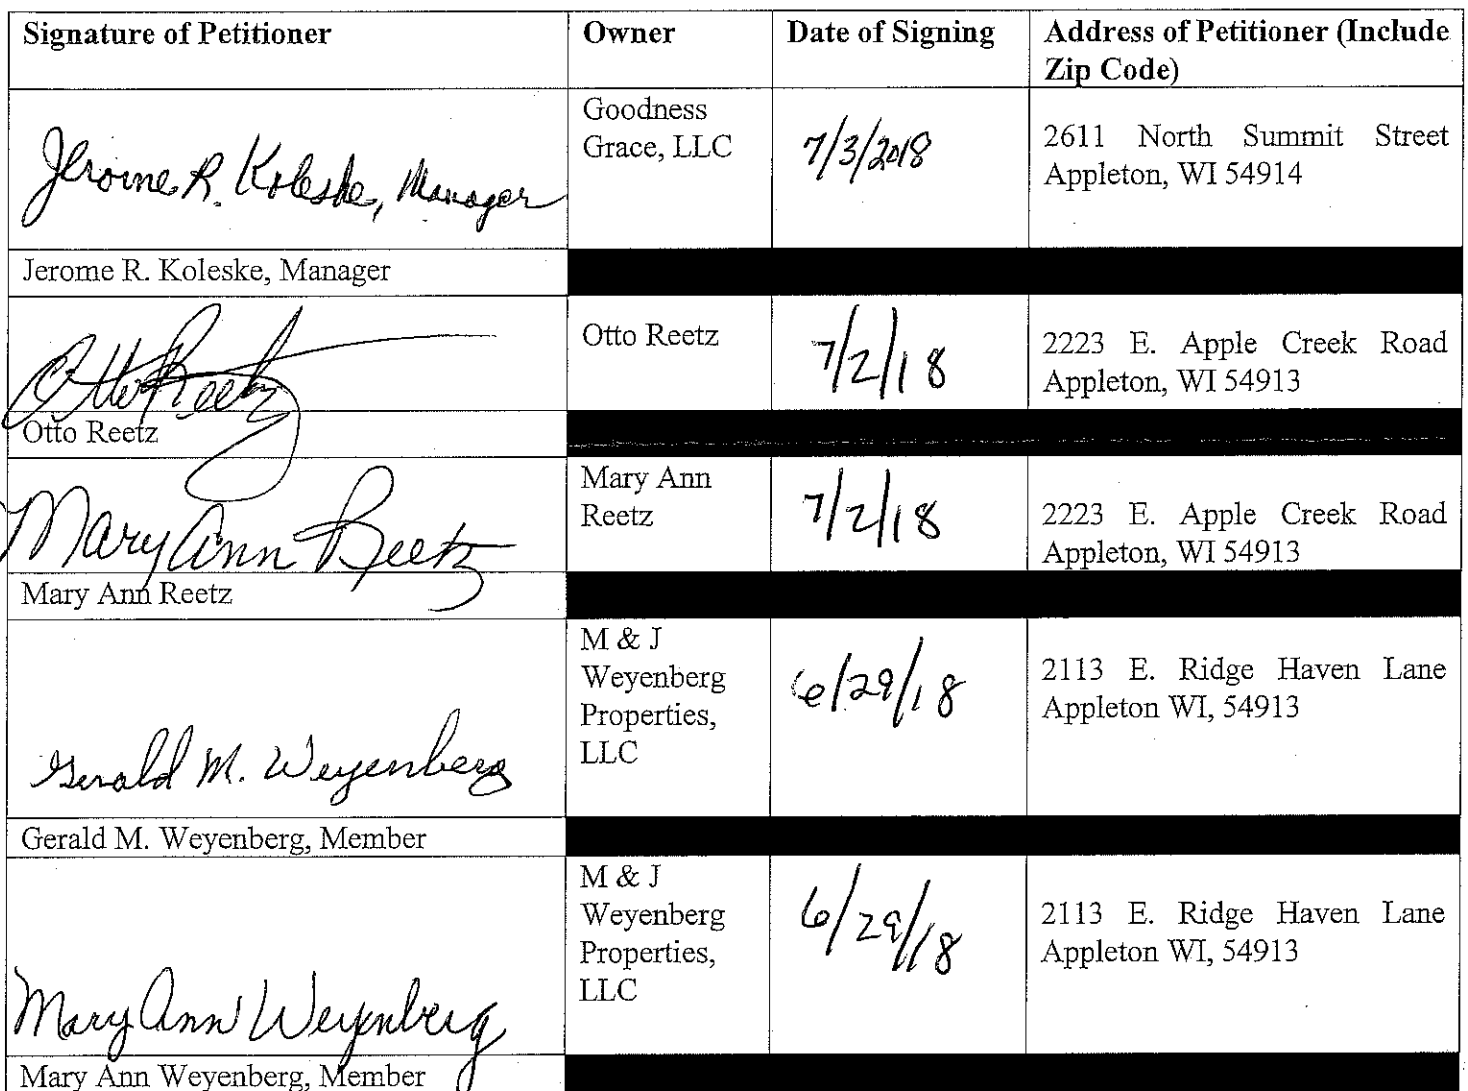 Signature of Petitioner
Owner
Date of Signing
Address of Petitioner (Include
Zip Code)
Jerome R. Koleske, Manager
Goodness
Grace, LLC
7/3/2018
2611 North Summit Street
Appleton, WI 54914
Jerome R. Koleske, Manager
Otto Reetz
Otto Reetz
7/2/18
2223 E. Apple Creek Road
Appleton, WI 54913
Otto Reetz
Mary Ann Reetz
Mary Ann
Reetz
7/2/18
2223 E. Apple Creek Road
Appleton, WI 54913
Mary Ann Reetz
Gerald M. Weyenberg
M & J
Weyenberg
Properties,
LLC
6/29/18
2113 E. Ridge Haven Lane
Appleton WI, 54913
Gerald M. Weyenberg, Member
Mary Ann Weyenberg
M & J
Weyenberg
Properties,
LLC
6/29/18
2113 E. Ridge Haven Lane
Appleton WI, 54913
Mary Ann Weyenberg, Member